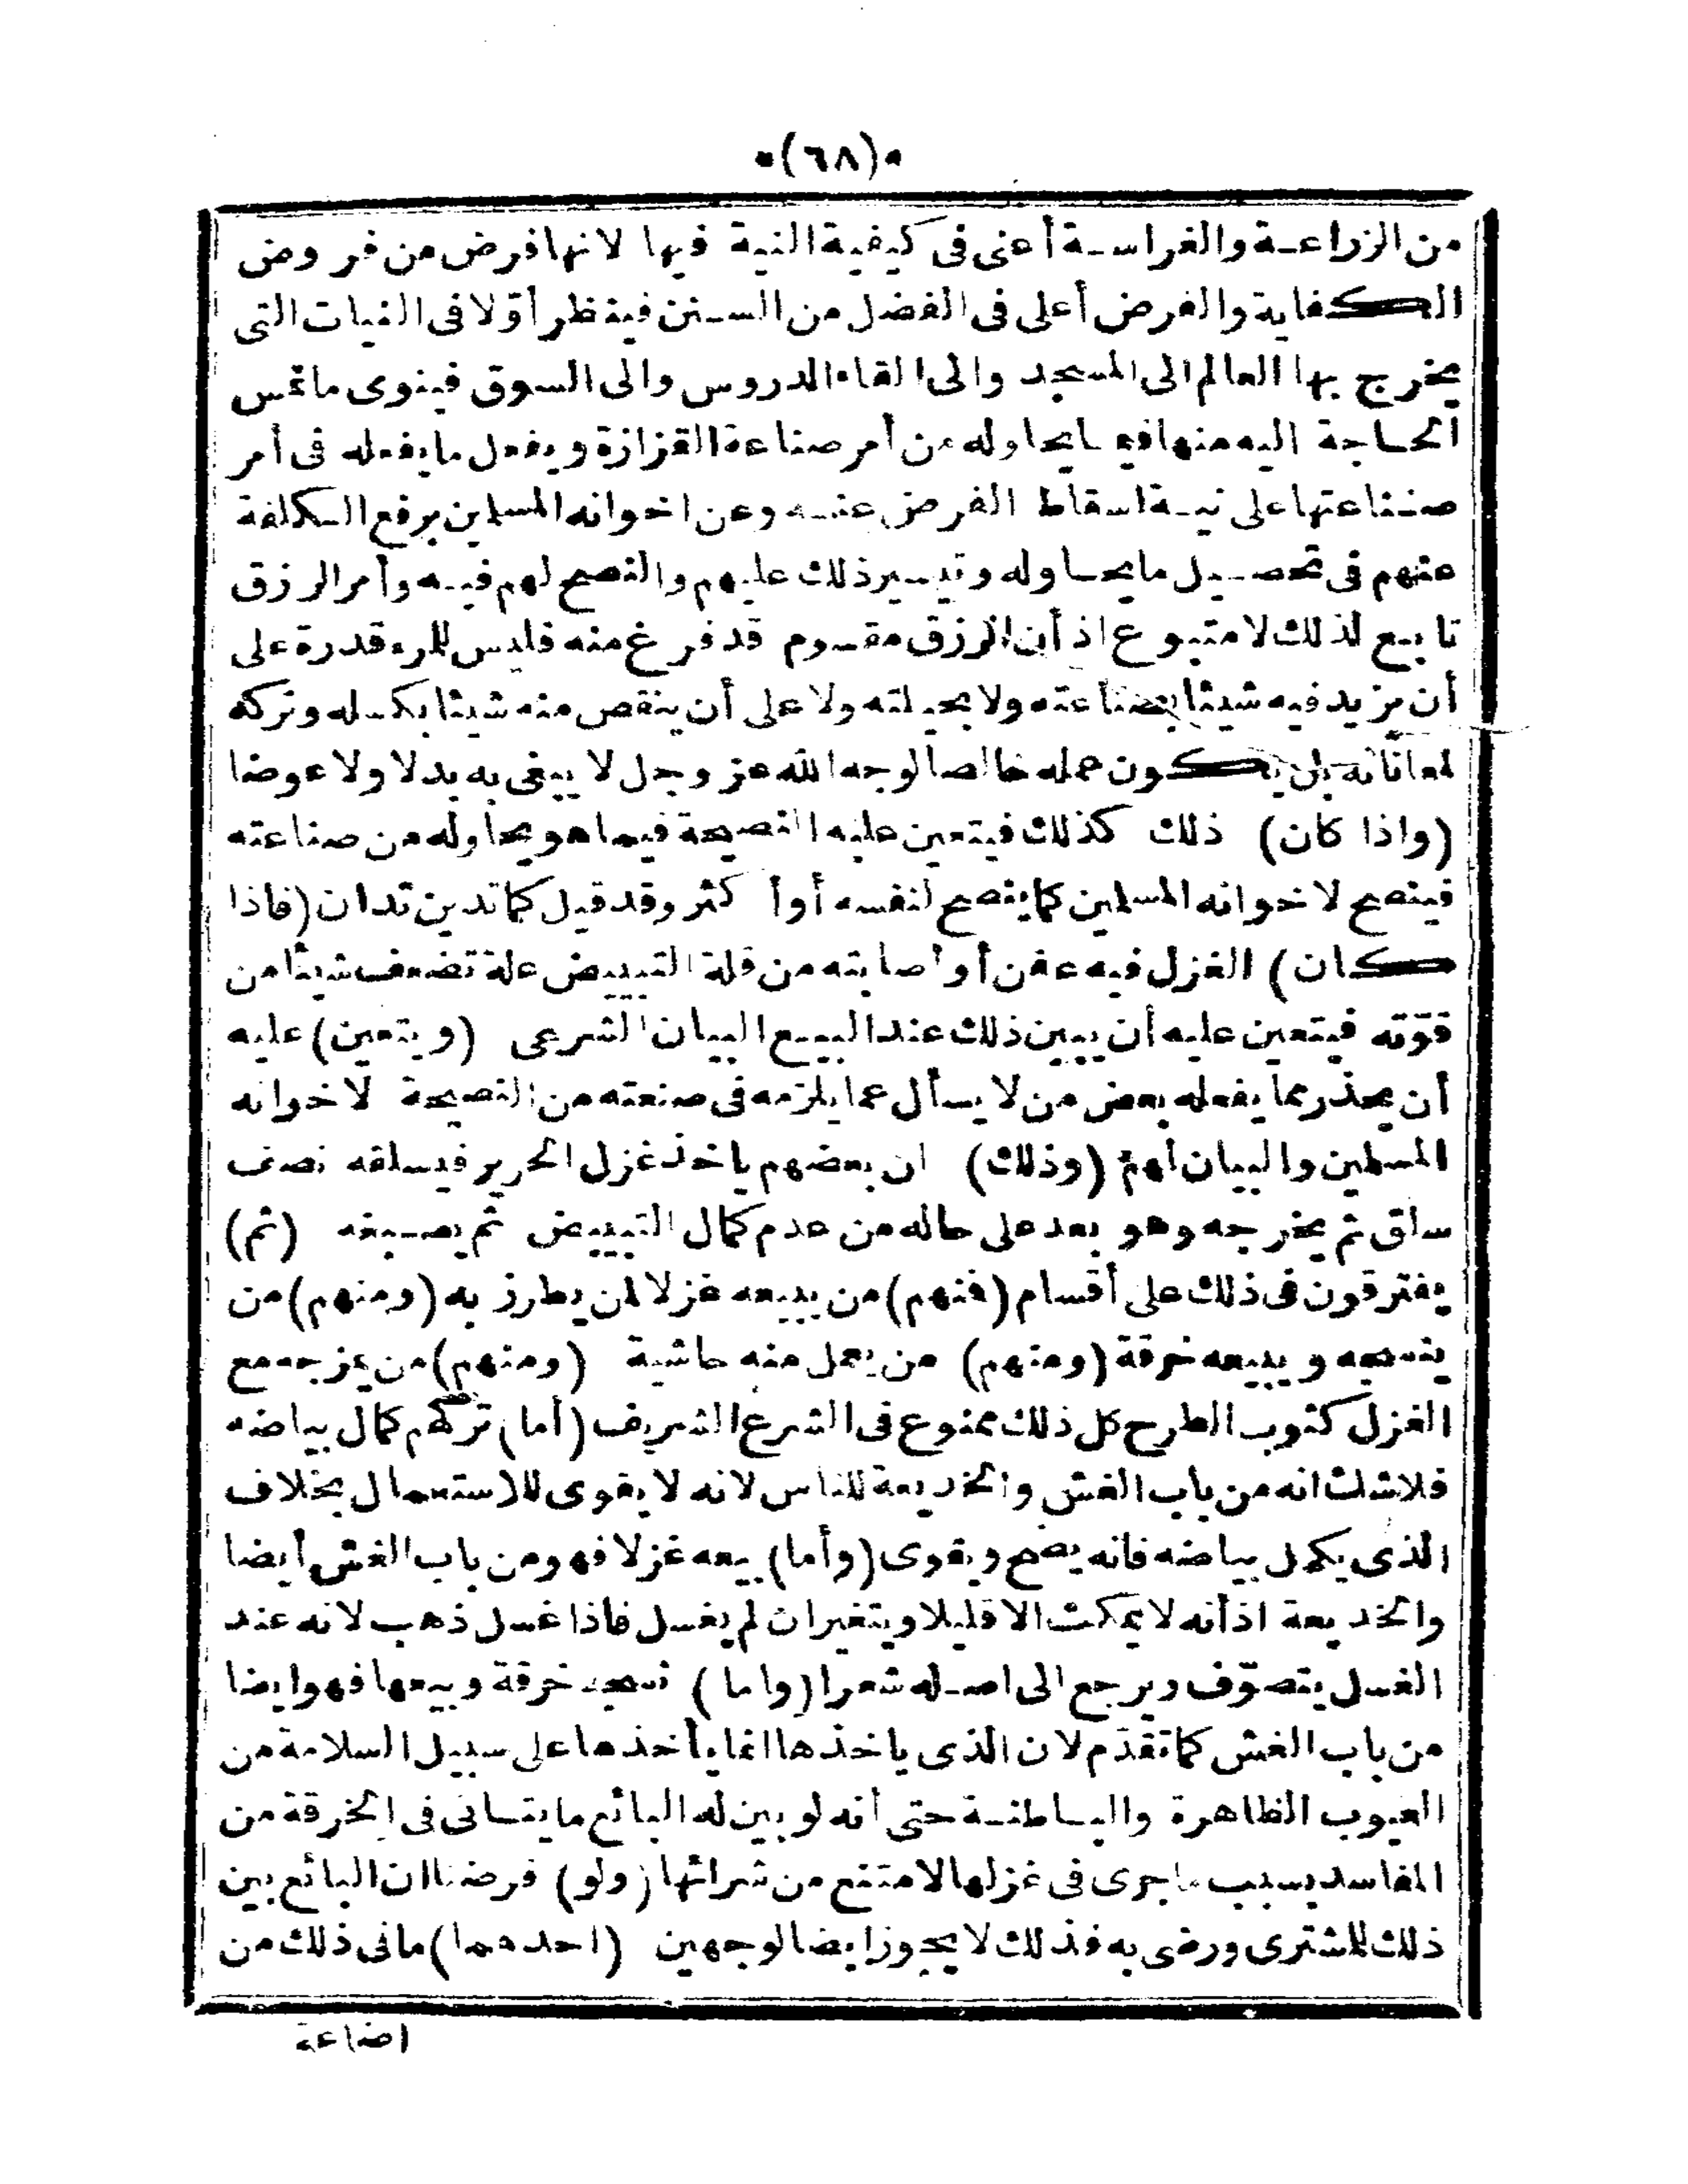 •(٦٨)•
من الزراعة والغراسة أعنى فى كيفية النية فيها لانها فرض من فروض
الكفاية والفرض أعلى فى الفضل من السنن فينظر أوّلا فى النيات التى
يخرج بها العالم الى المسجد والى القاء الدروس والى السوق فينوى ما تمس
الحاجة اليه منها فيما يحاوله من أمر صناعة القزازة ويفعل ما يفعله فى أمر
صنناعتها على نية اسقاط الفرض عنه وعن اخوانه المسلمين برفع الكلفة
عنهم فى تحصيل ما يحاوله وتيسير ذلك عليهم والنصح لهم فيه وأمر الرزق
تابع لذلك لا متبوع اذ أن الرزق مقسوم قد فرغ منه فليس للمرء قدرة على
أن يزيد فيه شيئا بصناعته ولا بحيلته ولا على أن ينقص منه شيئا بكسله وتركه
لمعاناته بل يكون عمله خالصا لوجه الله عز وجل لا يبغى به بدلا ولا عوضا
(واذا كان) ذلك كذلك فيتعين عليه النصيحة فيما هو يحاوله من صناعته
فينصح لاخوانه المسلمين كما ينصح لنفسه أو أكثر وقد قيل كما تدين تدان (فاذا
كان) الغزل فيه عفن أو اصابته من قلة التبييض علة تضعف شيئا من
قوّته فيتعين عليه أن يبين ذلك عند البيع البيان الشرعى (ويتعين) عليه
أن يحذر مما يفعله بعض من لا يسأل عما يلزمه فى صنعته من النصيحة لاخوانه
المسلمين والبيان لهم (وذلك) ان بعضهم ياخذ غزل الحرير فيسلقه نصف
سلق ثم يخرجه وهو بعد على حاله من عدم كمال التبييض ثم يصبغه (ثم)
يفترقون فى ذلك على أقسام (فمنهم) من يبيعه غزلا لمن يطرز به (ومنهم) من
ينسجه ويبيعه خرقة (ومنهم) من يعمل منه حاشية (ومنهم) من يمزجه مع
الغزل كثوب الطرح كل ذلك ممنوع فى الشرع الشريف (أما) تركهم كمال بياضه
فلا شك انه من باب الغش والخديعة للناس لانه لا يقوى للاستعمال بخلاف
الذى يكمل بياضه فانه يصح ويقوى (وأما) بيعه غزلا فهو من باب الغش أيضا
والخديعة اذ أنه لا يمكث الا قليلا ويتغير ان لم يغسل فاذا غسل ذهب لانه عند
الغسل يتصوّف ويرجع الى اصله شعرا (واما) نسجه خرقة وبيعها فهو ايضا
من باب الغش كما تقدّم لان الذى ياخذها انما يأخذها على سبيل السلامة من
العيوب الظاهرة والباطنة حتى أنه لو بين له البائع ما يتانى فى الخرقة من
المفاسد بسبب ما جرى فى غزلها لامتنع من شرائها (ولو) فرضنا ان البائع بين
ذلك للمشترى ورضى به فذلك لا يجوز ايضا لوجهين (احدهما) ما فى ذلك من
اضاعة